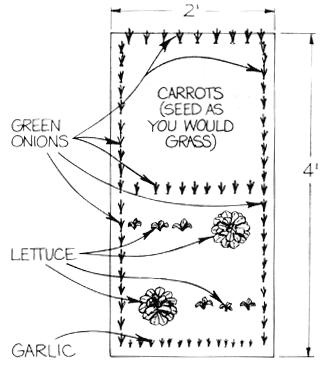 2'
CARROTS
(SEED AS
YOU WOULD
GRASS)
GREEN
ONIONS
4'
LETTUCE
GARLIC